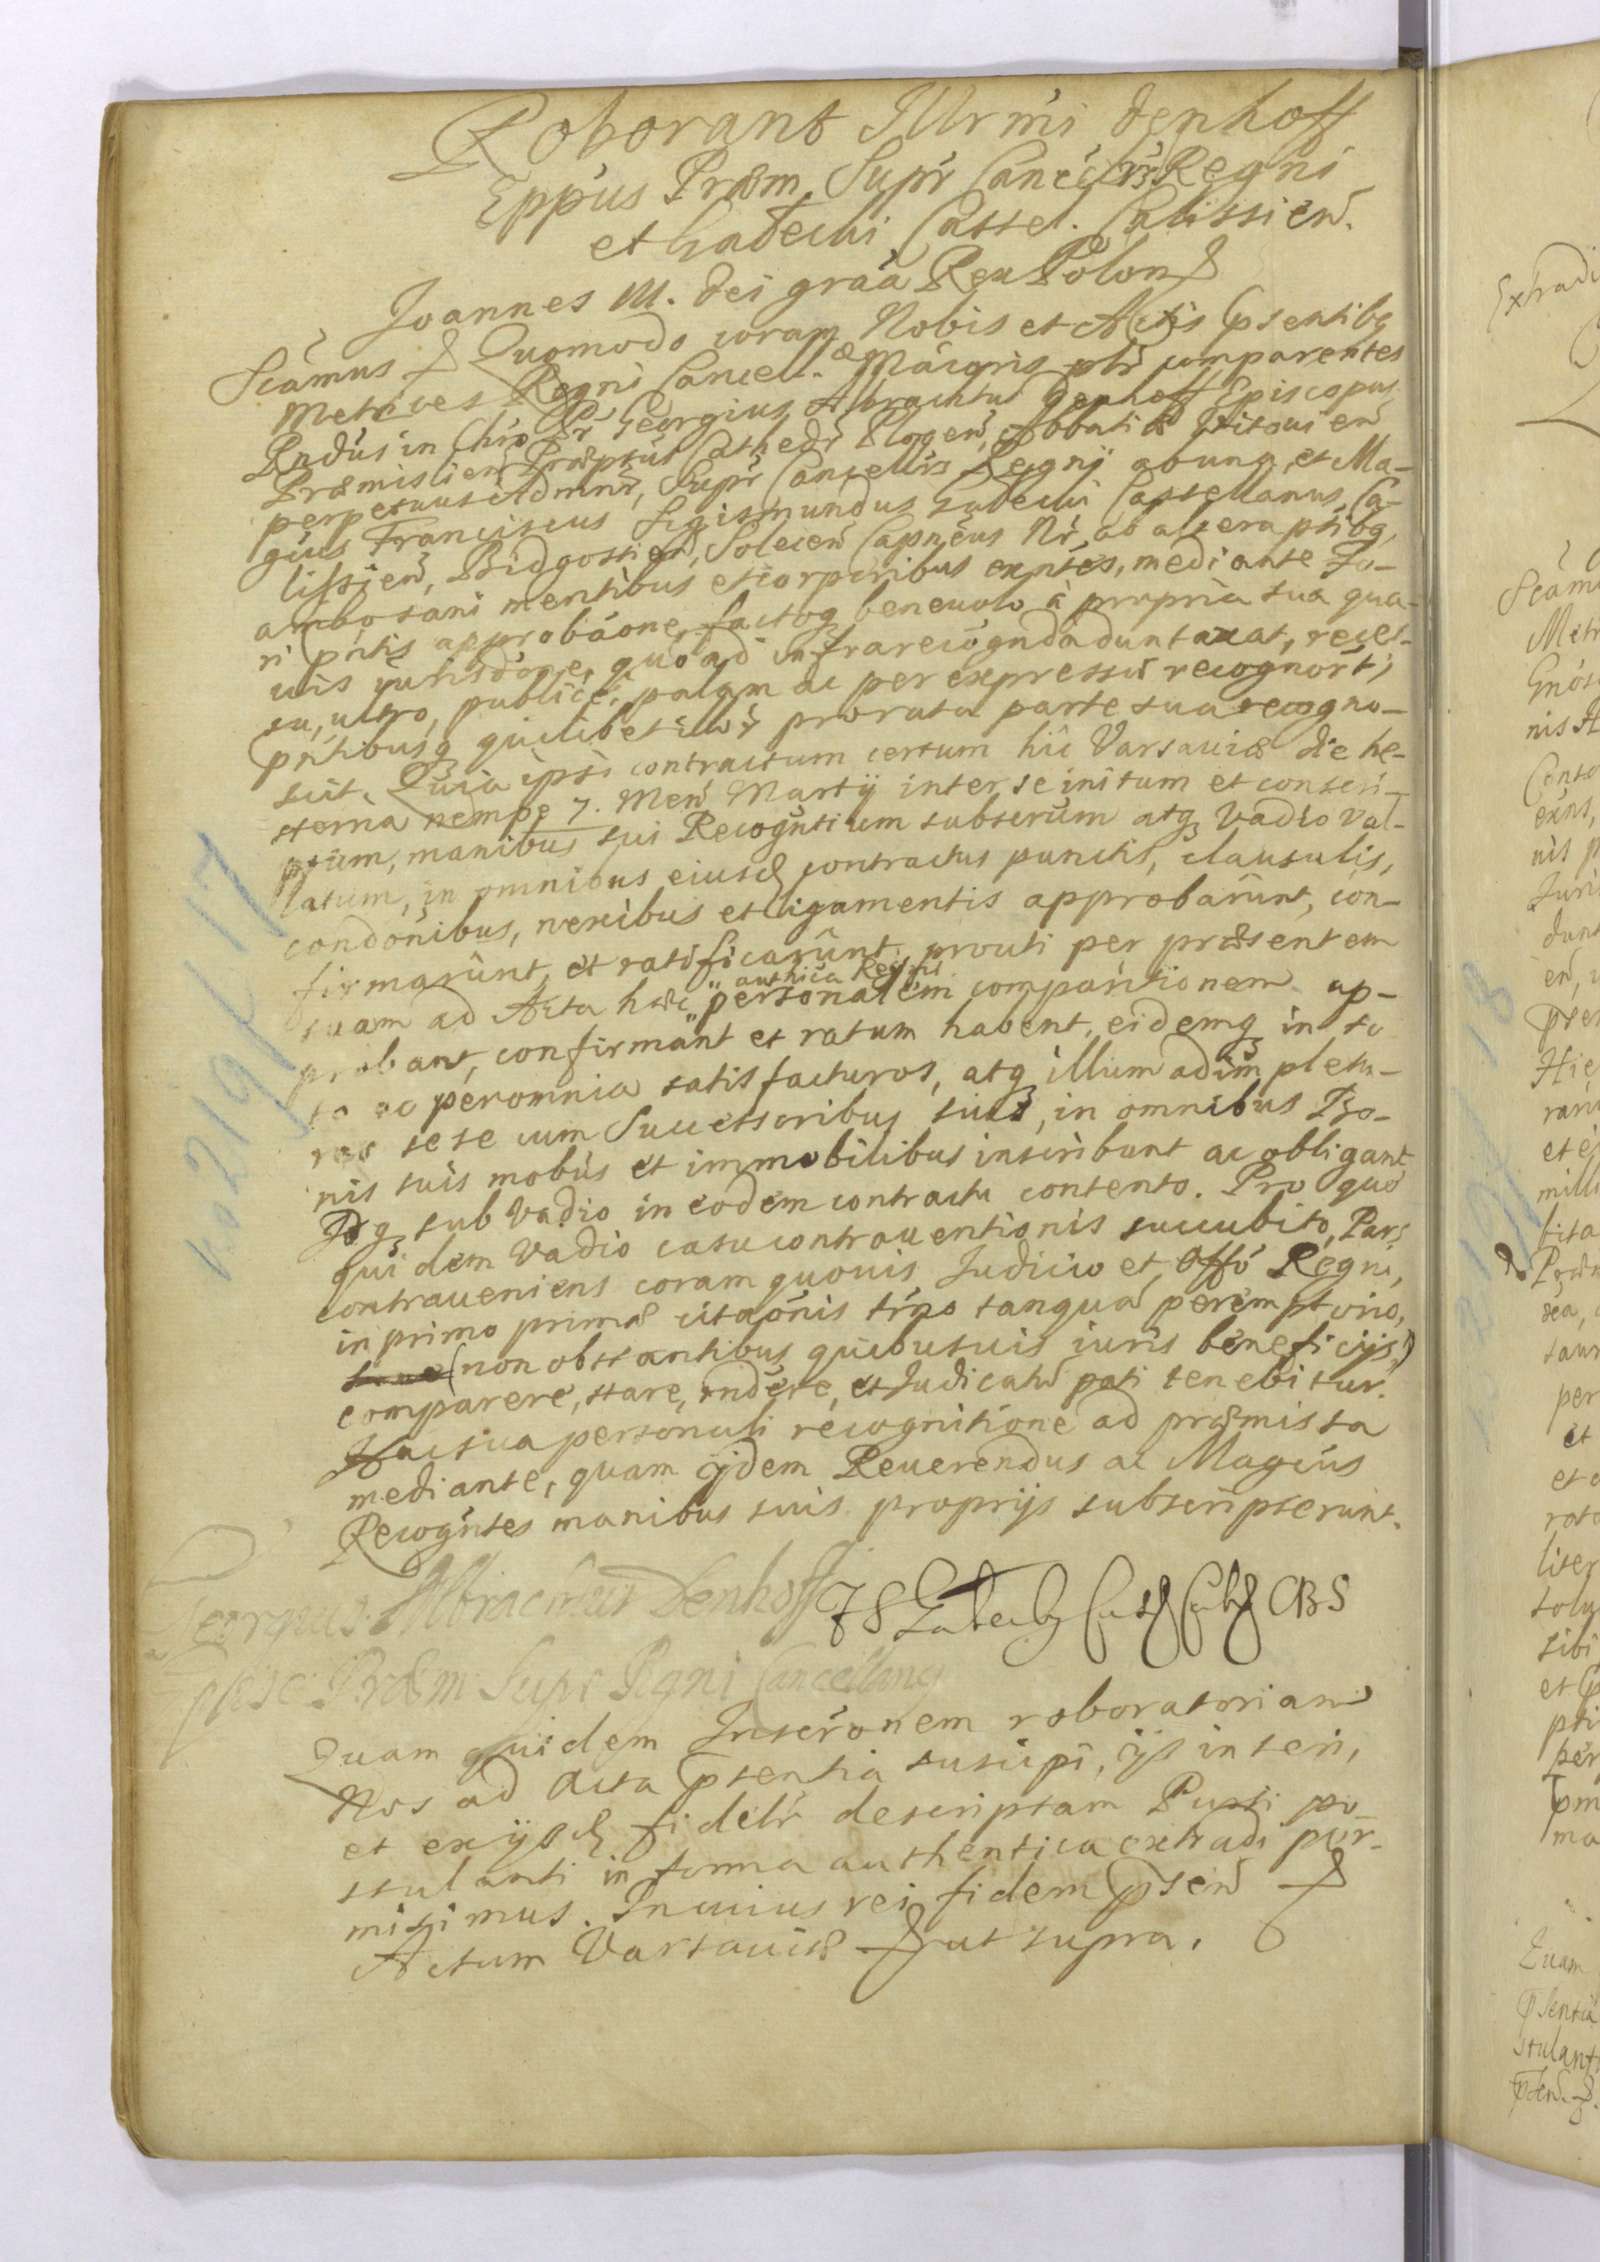 Roborant Illrmi Denhoff
Eppus Præm. Supr Cancrs Regni
et Gałecki Castel. Calissień.
Joannes III. Dei graa Rex Polon
Scamus Quomodo coram Nobis et Actis psentibg
Metrices Regni Cancell. Maioris pltr comparentes
Rndus in Chro Pr Georgius Albrachtus Denhoff Episcopus
Præmislień Præptus Cathedr Plocen, Abbatiæ
perpetuus Admnr, Supr Cancellrs Regny ab una, et Ma-
gcus Franciscus Sigismundus Gałecki Castellanus Ca-
lissień, Bidgostień, Solecen Capneus Nr ab altera ptibg,
ambo sani mentibus et corporibus exntes, mediante Fo-
ri pntis approbaone, factog beneuolo à propria sua qua-
uis iurisdóne, quo ad infrarecogndà duntaxat, reces-
su, ultro, publicè, palam ac per expressu recognort,
pntibusg quilibet illor prorata parte sua recogno-
scit. Quia ipsi contractum certum hic Varsauiæ die he-
sterna nempe 7. Men Martij inter se initum et conscri-
ptum, manibus sui Recogntium subscrum atg vadio val-
latum, in omnibus eiusd contractus punctis, clausulis,
condonibus, nexibus et ligamentis approbarunt, con-
firmarunt, et ratificarunt, prouti per præsentem
suam ad Acta hæc " personalem comparitionem ap-
" authica Regni
probant, confirmant et ratum habent, eidemg in to
to ac per omnia satisfacturos, atg illum adimpletu-
ros sese cum Successoribus suis, in omnibus Bo-
nis suis mobus et immobilibus inscribunt ac obligant,
Idg sub vadio in eodem contractu contento. Pro quo
quidem vadio casu contrauentionis succubito, Pars
contraueniens coram quouis Judicio et Offo Regni,
in primo primæ citaonis trno tanqua peremptorio,
(non obstantibus quibusuis iuris beneficijs,)
comparere, stare, rndere, et Judicatu pati tenebitur.
Hac sua personali recognitione ad præmissa
mediante, quam ijdem Reuerendus ac Magcus
Recogntes manibus suis proprijs subscripserunt.
Georgius Albrachtus Denhoff FS Gałecky CBS
Præm. Supr Regni Cancellarius
Quam quidem Inscronem roboratoriam
Nos ad Acta psentia suscipi, ijs inseri,
et ex ijsd fidelr descriptam Parti po-
stulanti in forma authentica extradi per-
misimus. In cuius rei fidem psen
Actum Varsauiæ ut supra.